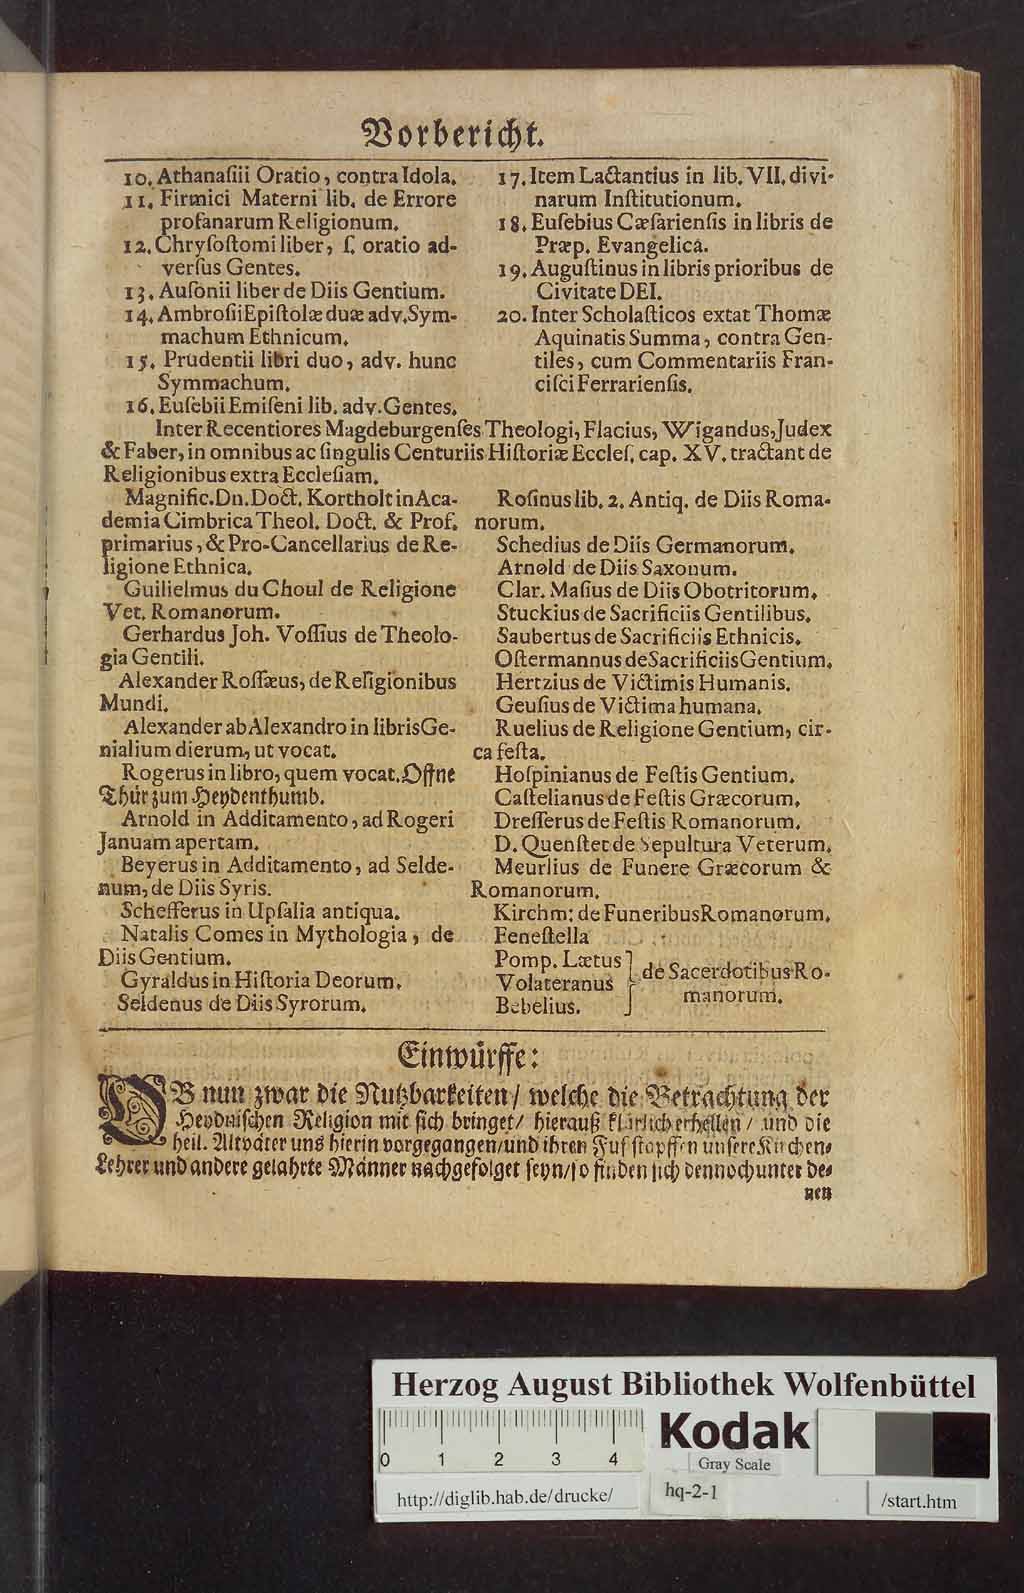 Vorbericht.
10. Athanaſiii Oratio, contra Idola.
11. Firmici Materni lib. de Errore
profanarum Religionum.
12. Chryſoſtomi liber, ſ. oratio ad-
verſus Gentes.
13. Auſonii liber de Diis Gentium.
14. Ambroſii Epiſtolæ duæ adv. Sym-
machum Ethnicum.
15. Prudentii libri duo, adv. hunc
Symmachum.
16. Euſebii Emiſeni lib. adv. Gentes.
17. Item Lactantius in lib. VII. divi-
narum Inſtitutionum.
18. Euſebius Cæſarienſis in libris de
Præp. Evangelica.
19. Auguſtinus in libris prioribus de
Civitate DEI.
20. Inter Scholaſticos extat Thomæ
Aquinatis Summa, contra Gen-
tiles, cum Commentariis Fran-
ciſci Ferrarienſis.
Inter Recentiores Magdeburgenſes Theologi, Flacius, Wigandus, Judex
& Faber, in omnibus ac ſingulis Centuriis Hiſtoriæ Eccleſ. cap. XV. tractant de
Religionibus extra Eccleſiam.
Magnific. Dn. Doct. Kortholt in Aca-
demia Cimbrica Theol. Doct. & Prof.
primarius, & Pro-Cancellarius de Re-
ligione Ethnica.
Guilielmus du Choul de Religione
Vet. Romanorum.
Gerhardus Joh. Voſſius de Theolo-
gia Gentili.
Alexander Roſſæus, de Religionibus
Mundi.
Alexander ab Alexandro in libris Ge-
nialium dierum, ut vocat.
Rogerus in libro, quem vocat. Offne
Thür zum Heydenthumb.
Arnold in Additamento, ad Rogeri
Januam apertam.
Beyerus in Additamento, ad Selde-
num, de Diis Syris.
Schefferus in Upſalia antiqua.
Natalis Comes in Mythologia, de
Diis Gentium.
Gyraldus in Hiſtoria Deorum.
Seldenus de Diis Syrorum.
Roſinus lib. 2. Antiq. de Diis Roma-
norum.
Schedius de Diis Germanorum.
Arnold de Diis Saxonum.
Clar. Maſius de Diis Obotritorum.
Stuckius de Sacrificiis Gentilibus.
Saubertus de Sacrificiis Ethnicis.
Oſtermannus de Sacrificiis Gentium.
Hertzius de Victimis Humanis.
Geuſius de Victima humana.
Ruelius de Religione Gentium, cir-
ca feſta.
Hoſpinianus de Feſtis Gentium.
Caſtelianus de Feſtis Græcorum.
Dreſſerus de Feſtis Romanorum.
D. Quenſtet de Sepultura Veterum.
Meurſius de Funere Græcorum &
Romanorum.
Kirchm: de Funeribus Romanorum.
Feneſtella
Pomp. Lætus
Volateranus
Bebelius.
de Sacerdotibus Ro-
manorum.
Einwürffe:
OB nun zwar die Nutzbarkeiten/ welche die Betrachtung der
Heydniſchen Religion mit ſich bringet/ hierauß klärlich erhellen/ und die
heil. Altväter uns hierin vorgegangen/und ihren Fußſtapffen unſere Kirchen-
Lehrer und andere gelahrte Männer nachgefolget ſeyn/ſo finden ſich dennoch unter de-
nen
Herzog August Bibliothek Wolfenbüttel
0 1 2 3 4
Kodak
Gray Scale
http://diglib.hab.de/drucke/
hq-2-1
/start.htm